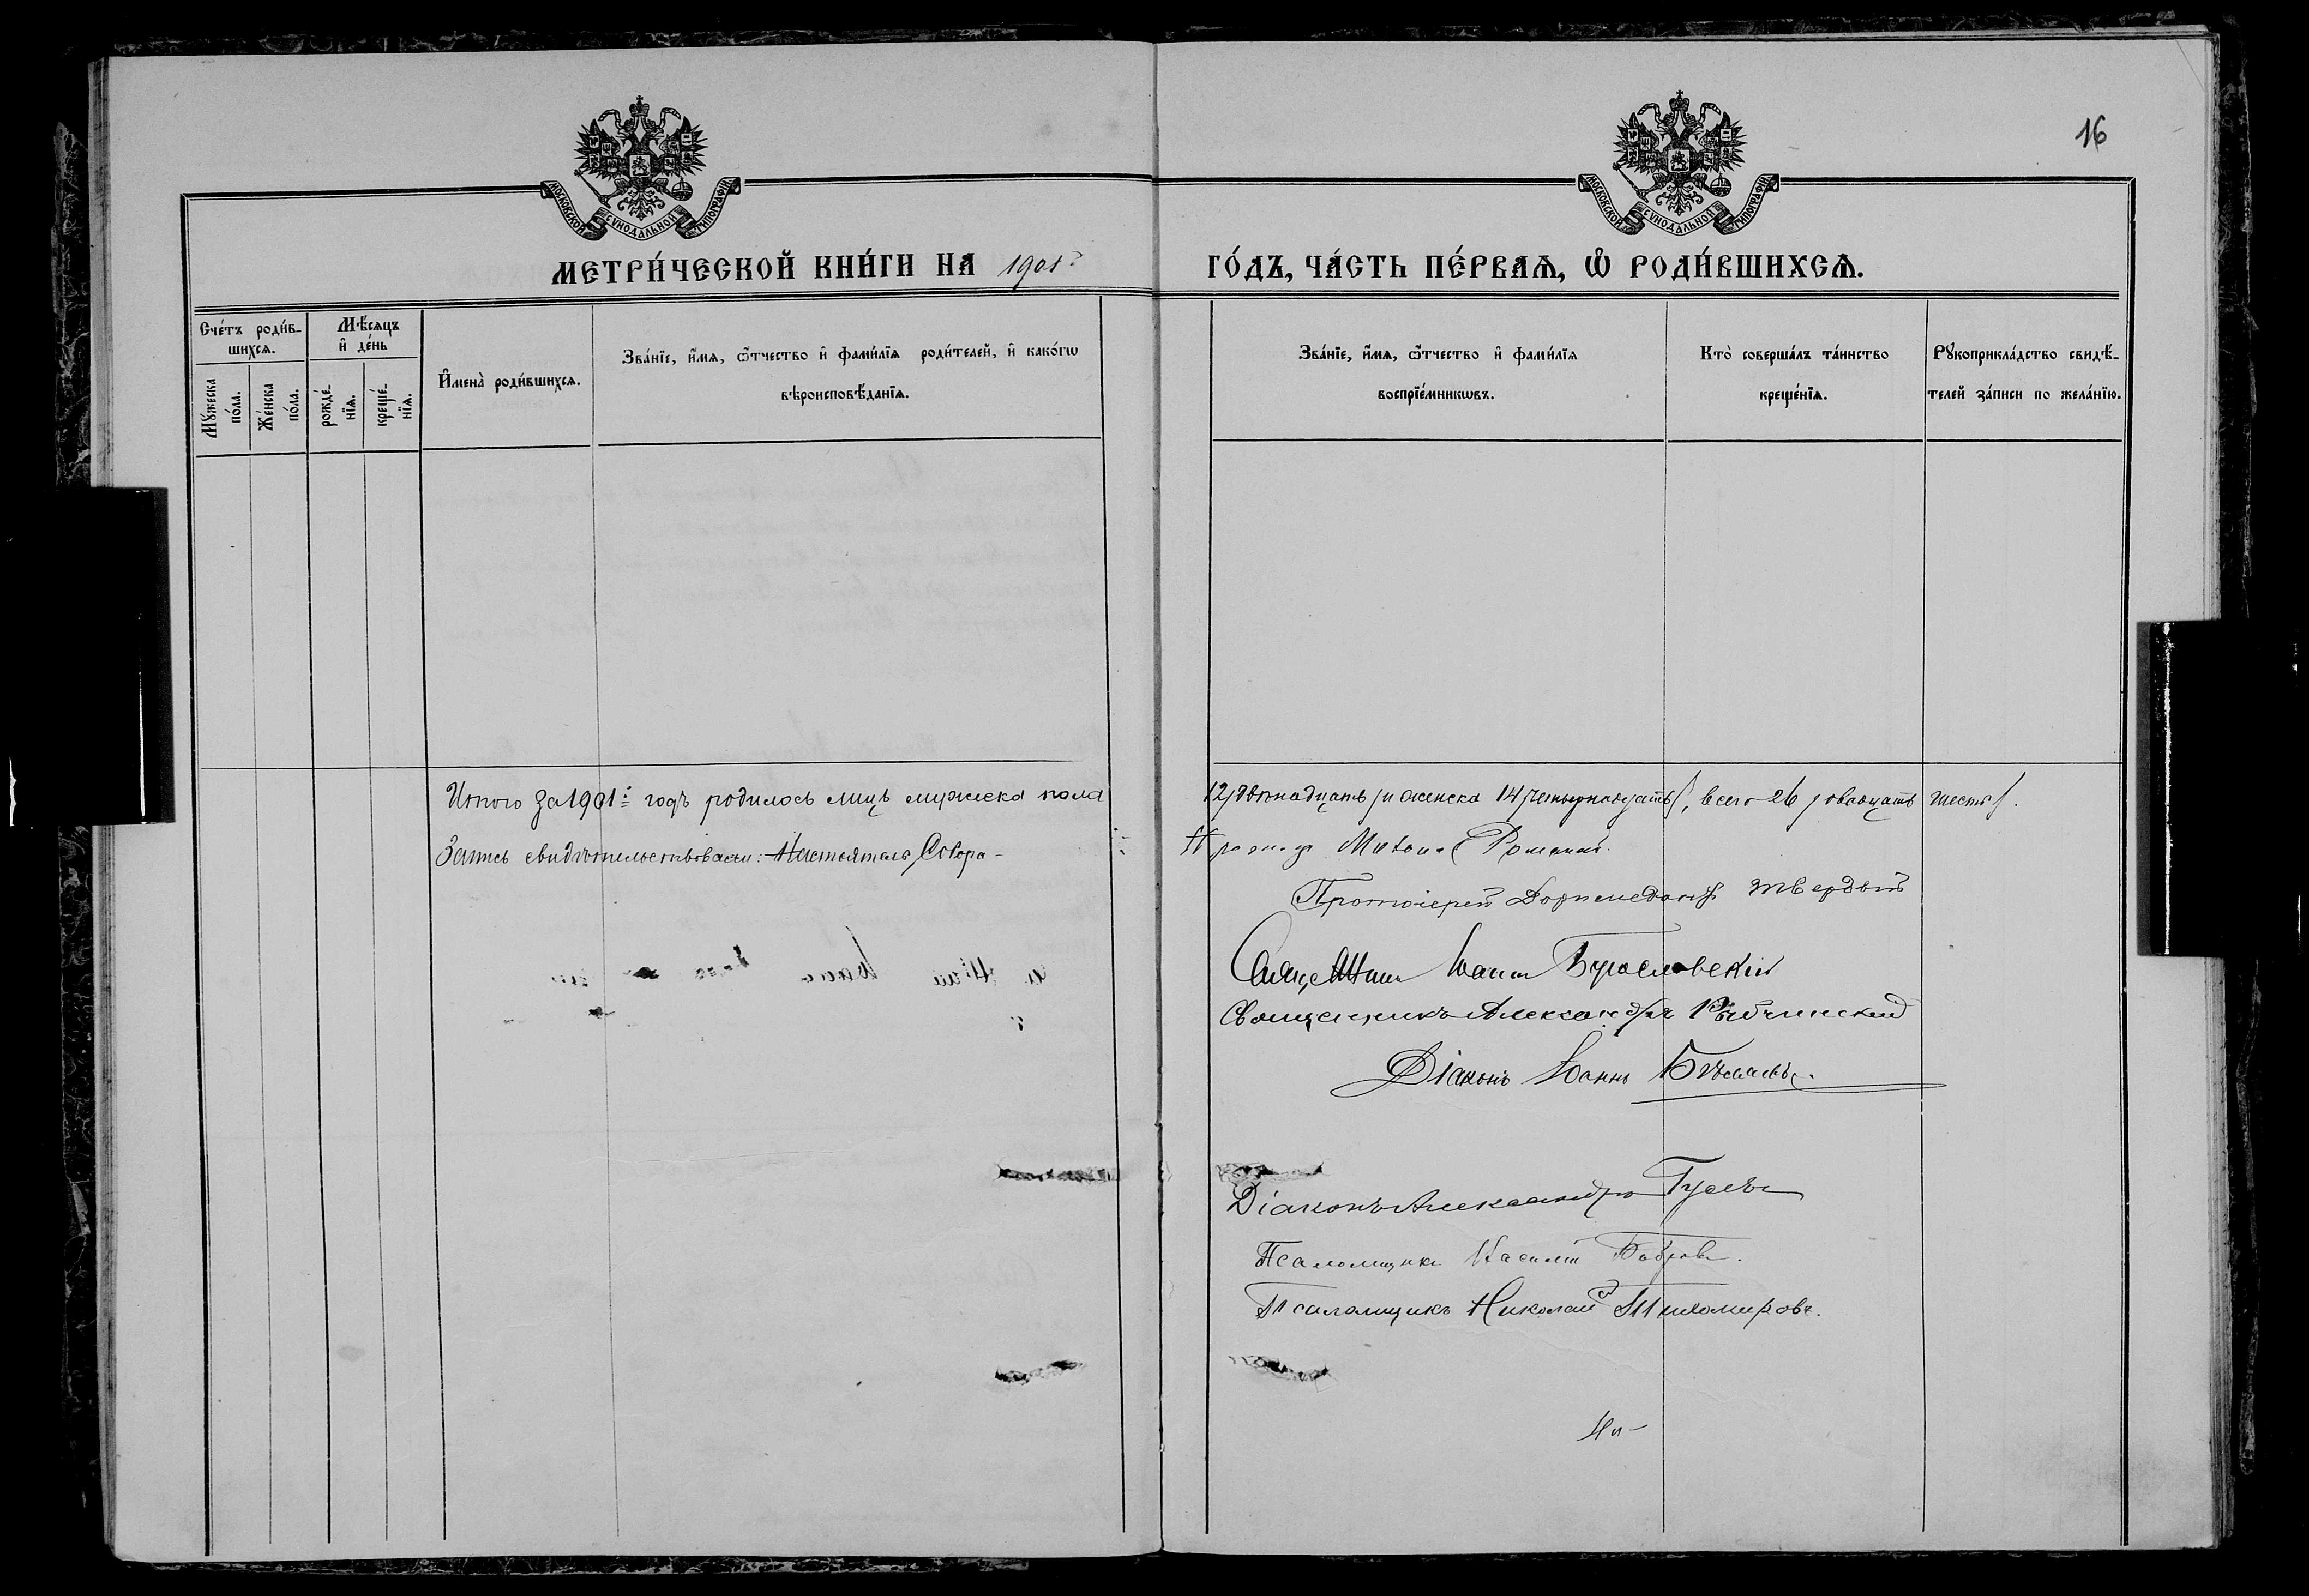 16
МОСКОВСКОЙ СѴНОДАЛЬНОЙ ТИПОГРАФІИ
МОСКОВСКОЙ СѴНОДАЛЬНОЙ ТИПОГРАФІИ
МЕТРИ́ЧЕСКОЙ КНИ́ГИ НА 1901 ГО́ДЪ, ЧА́СТЬ ПЕ́РВАѦ, Ѡ҆ РОДИ́ВШИХСѦ.
Сче́тъ роди́в-
шихсѧ.
Мꙋ́жеска
по́ла.
Же́нска
по́ла.
Мѣ́сяцъ
и҆ де́нь
рожде́-
нїѧ.
креще́-
нїѧ.
И҆мена̀ роди́вшихсѧ.
Зва́нїе, и҆́мѧ, ѻ҆́тчество и҆ фами́лїѧ роди́телей, и҆ како́гѡ
вѣроисповѣ́данїѧ.
Зва́нїе, и҆́мѧ, ѻ҆́тчество и҆ фами́лїѧ
воспрїе́мникѡвъ.
Кто̀ соверша́лъ та́инство
креще́нїѧ.
Рꙋкоприкла́дство свидѣ́-
телей за́писи по жела́нїю.
Итого за 1901й годъ родилось лицъ мужеска пола 12 /двѣнадцать/ и женска 14 /четырнадцать/, всего 26 /двадцать шесть/.
Запись свидѣтельствовали: Настоятель Собора -
Протоіерей Твердый
Іоаннъ Богословскій
Священникъ Александръ
Діаконъ Іоаннъ
Діаконъ Александръ Гусевъ
Псаломщикъ Василій Бобровъ.
Псаломщикъ Николай Тихомировъ.